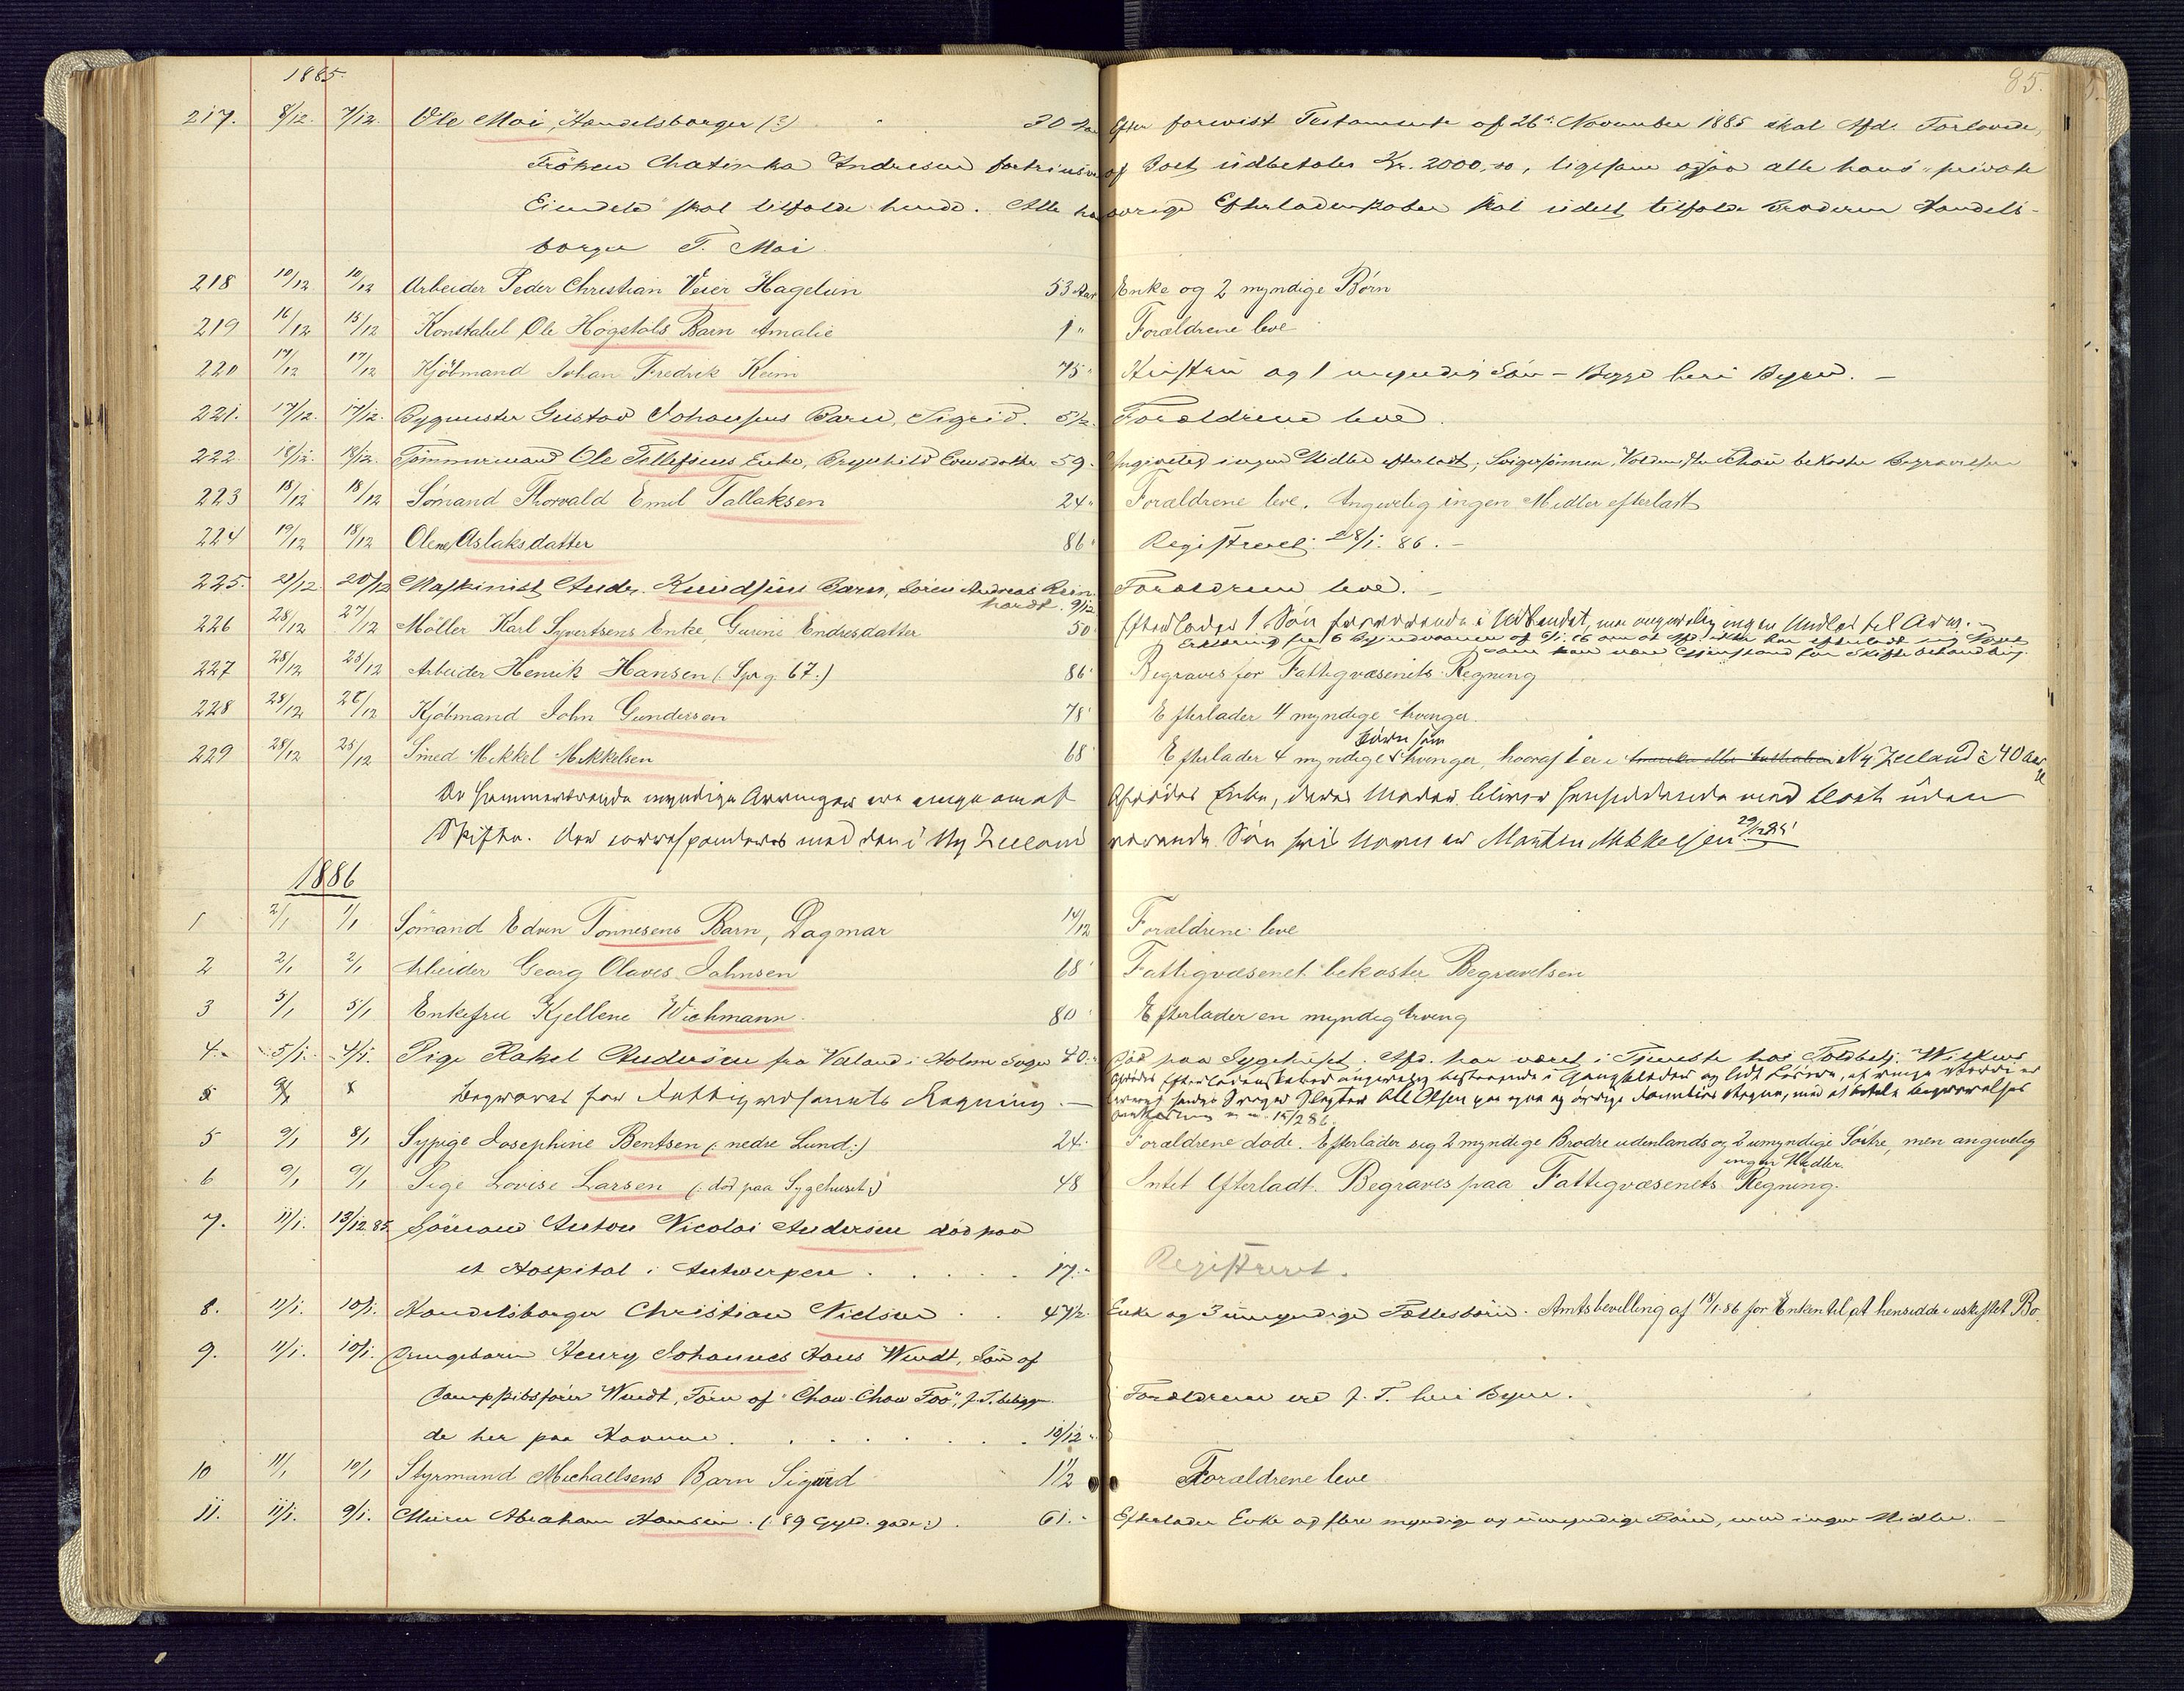 1885.
85.
217. 8/12. 7/12. Ole Moi, Handelsborger (?) 30 Aar Efter forevist Testamente af 26de November 1885 skal Afd. Forlovede,
Fröken Chatinka Andresen fortrinsvis af Boet udbetales Kr. 2000,00, ligesom ogsaa alle hans "private
Eiendele" skal tilfalde hende. Alle hans övrige Efterladenskaber skal udelt tilfalde Broderen Handels-
borger T. Moi.
218 10/12 10/12 Arbeider Peder Christian Veier Hagelin 53 Aar Enke og 2 myndige Börn
219 16/12 15/12 Konstabel Ole Högstols Barn Amalie 1 " Forældrene leve
220 17/12 17/12 Kjöbmand Johan Fredrik Keim 75 " Hustru og 1 myndig Sön - Begge her i Byen. -
221. 17/12. 17/12. Bygmester Gustav Johansens Barn, Sigrid. 5 1/2. Forældrene leve.
222. 18/12. 18/12. Tömmermand Ole Tellefsens Enke, Brynhild Evensdatter 59. Angivelig ingen Midler efterladt; Svigersönnen, bekoster Begravelsen
223 18/12 18/12 Sömand Thorvald Emil Tallaksen 24 " Forældrene leve. Angivelig ingen Midler efterladt
224 19/12 18/12 Olene Aslaksdatter 86 " Registreret 28/1. 86. -
225. 21/12. 20/12 Maskinist Andr. Knudsens Barn, Sören Andreas Rein- Forældrene leve. -
hardt. 9/12
226 28/12 27/12 Möller Karl Syvertsens Enke, Gurine Endresdatter 50 Efterlader 1 Sön fraværende i Udlandet, men angivelig ingen Midler til Arv. -
227 28/12 25/12 Arbeider Henrik Hansen (: Spr g. 67 :) 86 " Begraves for Fattigvæsenets Regning
228 28/12 26/12 Kjöbmand John Gundersen 78 " Efterlader 4 myndige Arvinger.
Börn som
229 28/12 25/12 Smed Mekkel Mekkelsen 68 " Efterlader 4 myndige Arvinger, hvoraf 1 er i Amerika eller Australien Ny Zeeland ca 40 Aar gl
De hjemmeværende myndige Arvinger ere enige om at Afdödes Enke, deres Moder bliver hensiddende med Boet uden
Skifte. Der correspondæres med den i Ny Zeeland værende Sön hvis Navn er Martin Mekkelsen 29/12 85
1886
1 2/1 1/1 Sömand Edvin Tönnesens Barn, Dagmar 14/12 Forældrene leve
2 2/1 2/1 Arbeider Georg Olaves Jahnsen 68 " Fattigvæsenet bekoster Begravelsen
3 5/1 5/1 Enkefru Kjellene Wichmann. 80 " Efterlader en myndig Arving
4. 5/1. 4/1. Pige Rakel Andersen fra Valand i Holom Sogn 40. " Död paa Sygehuset. Afd. har været i Tjeneste hos Toldbetj. Wilkens
Begraves for Fattigvæsenets Regning. - Afdödes Efterladenskaber angivelig bestaaende i Gangklæder og lidt Lösöre, af ringe Værdi er
15/2 86.
5 9/1 8/1 Sypige Josephine Bentsen (: nedre Lund :) 24. Forældrene döde. Efterlader sig 2 myndige Brödre udenlands og 2 umyndige Söstre, men angivelig
ingen Midler.
6 9/1 9/1 Pige Lovise Larsen (: död paa Sygehuset :) 48 Intet Efterladt. Begraves paa Fattigvæsenets Regning.
7. 11/1. 13/12 85. Sömand Anton Nicolai Andersen död paa
et Hospital i Antwerpen . . . . . 17. " Registreret.
8. 11/1. 10/1. Handelsborger Christian Nielsen . . 47 1/2. Enke og 3 umyndige Fællesbörn. Amtsbevilling af 18/1. 86 for Enken til at hensidde i uskiftet Bo.
9. 11/1. 10/1. Drengebarn Henry Johannes Hans Wendt, Sön af
Dampskibsförer Wendt, Förer af "Chow-Chow Foo", p. T. beliggen-
de her paa Havnen . . . . . . . 10/12 " Forældrene ere p. T. her i Byen.
10 11/1 10/1 Styrmand Michaelsens Barn Sigurd 1 1/2 Forældrene leve
11. 11/1. 9/1. Murer Abraham Hansen. (: 89 Gyld. gade :) . 61. " Efterlader Enke og flere myndige og umyndige Börn, men ingen Midler. -